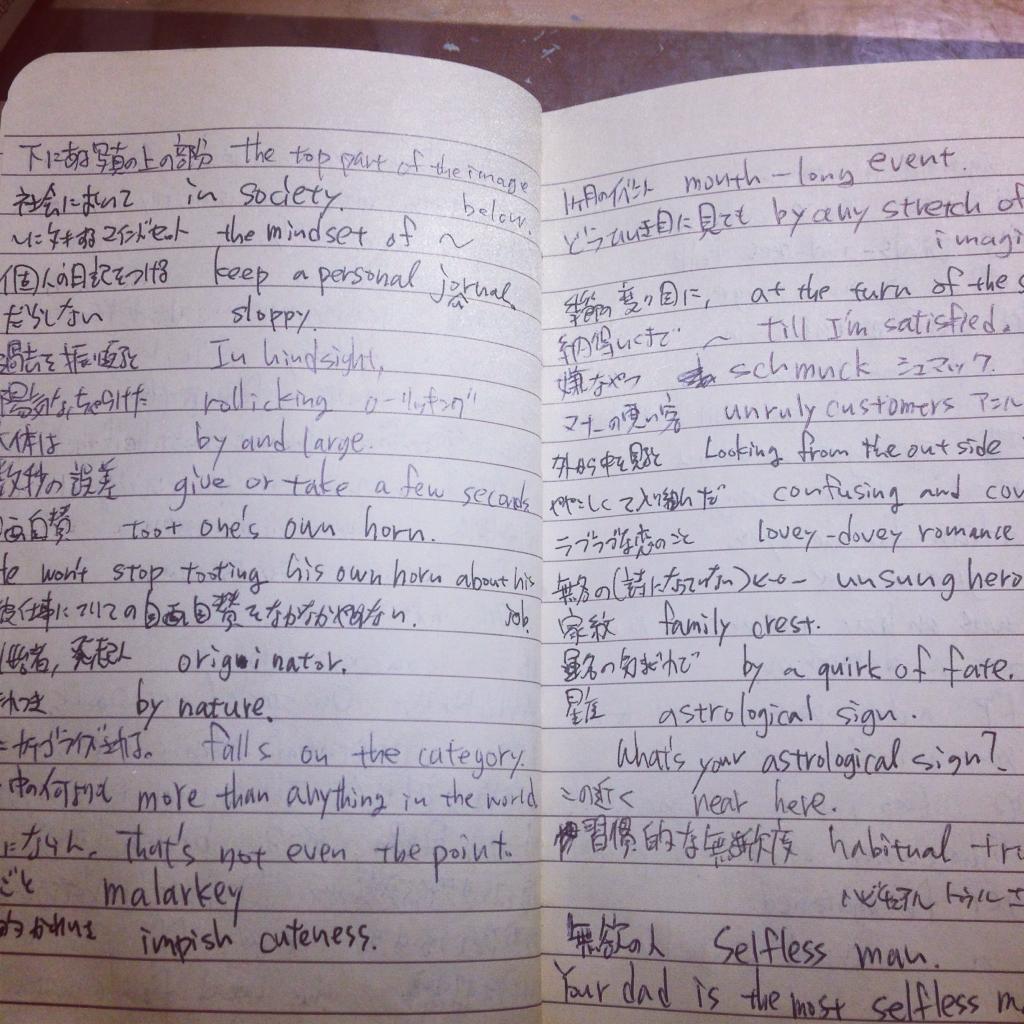 下にある写真の上の部分 the top part of the image below.
社会において in society.
〜に対するマインドセット the mindset of 〜
個人の日記をつける keep a personal jornal.
だらしない sloppy.
過去を振り返ると In hindsight,
陽気な, rollicking ローリッキング
大体は by and large.
数秒の誤差 give or take a few seconds
画自賛 toot one's own horn.
He won't stop tooting his own horn about his job.
彼仕事についての自画自賛をなかなかやめない.
始者, originator.
by nature.
にカテゴライズされる. falls on the category.
中の何よりも more than anything in the world
That's not even the point.
ごと malarkey
impish cuteness.
1ヶ月のイベント month-long event.
どうひいき目に見ても by any stretch of imagi
変り目に, at the turn of the s
納得いくまで 〜 till I'm satisfied.
嫌なやつ schmuck シュマック.
マナーの悪い客 unruly customers アンル
外から中を見ると Looking from the outside
ややこしくて入り組んだ confusing and co
ラブラブな恋のこと lovey-dovey romance
無名の(詩になっていない)ヒーロー unsung hero
家紋 family crest.
運命の気まぐれで by a quirk of fate.
星座 astrological sign.
What's your astrological sign?
この近く near here.
習慣的な無断欠席 habitual tr
ハビチュアル トゥル
無欲の人 Selfless man.
Your dad is the most selfless m